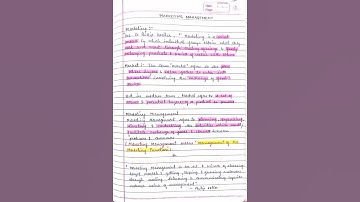 Date
Page
MARKETING MANAGEMENT
Marketing :-
Acc. to Philip Kotler - " Marketing is a social
process by which individual groups obtain what they
need and want through creating, offering & freely
exchanging products & services of value with others
Market :- The term "market" refers to the place
where buyers & sellers gather to enter into
transactions involving the exchange of goods &
services
But in modern term, Market refers to
actual & potential buyers of a product or service
Marketing Management
Marketing Management refers to planning, organising,
directing & controlling the activities which
facilitate exchange of goods & services between
producers & consumers
(Marketing Management means "management of the
Marketing Functions)
" Marketing Management is the art & science of choosing
target markets & getting, keeping & growing customers
through creating, delivering & communicating superior
customer value of management "
- Philip Kotler